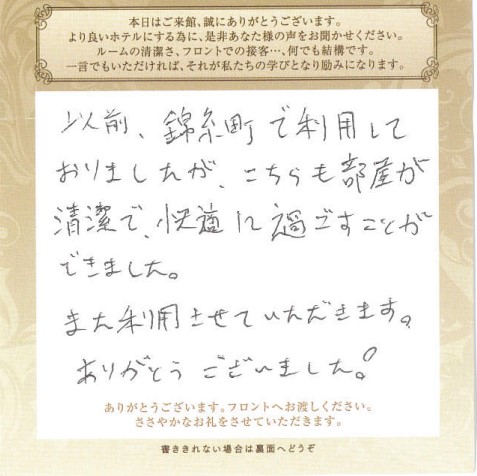 本日はご来館、誠にありがとうございます。
より良いホテルにする為に、是非あなた様の声をお聞かせください。
ルームの清潔さ、フロントでの接客…、何でも結構です。
一言でもいただければ、それが私たちの学びとなり励みになります。
以前、錦糸町で利用して
おりましたが、こちらも部屋が
清潔で、快適に過ごすことが
できました。
また利用させていただきます。
ありがとうございました!
ありがとうございます。フロントへお渡しください。
ささやかなお礼をさせていただきます。
書ききれない場合は裏面へどうぞ